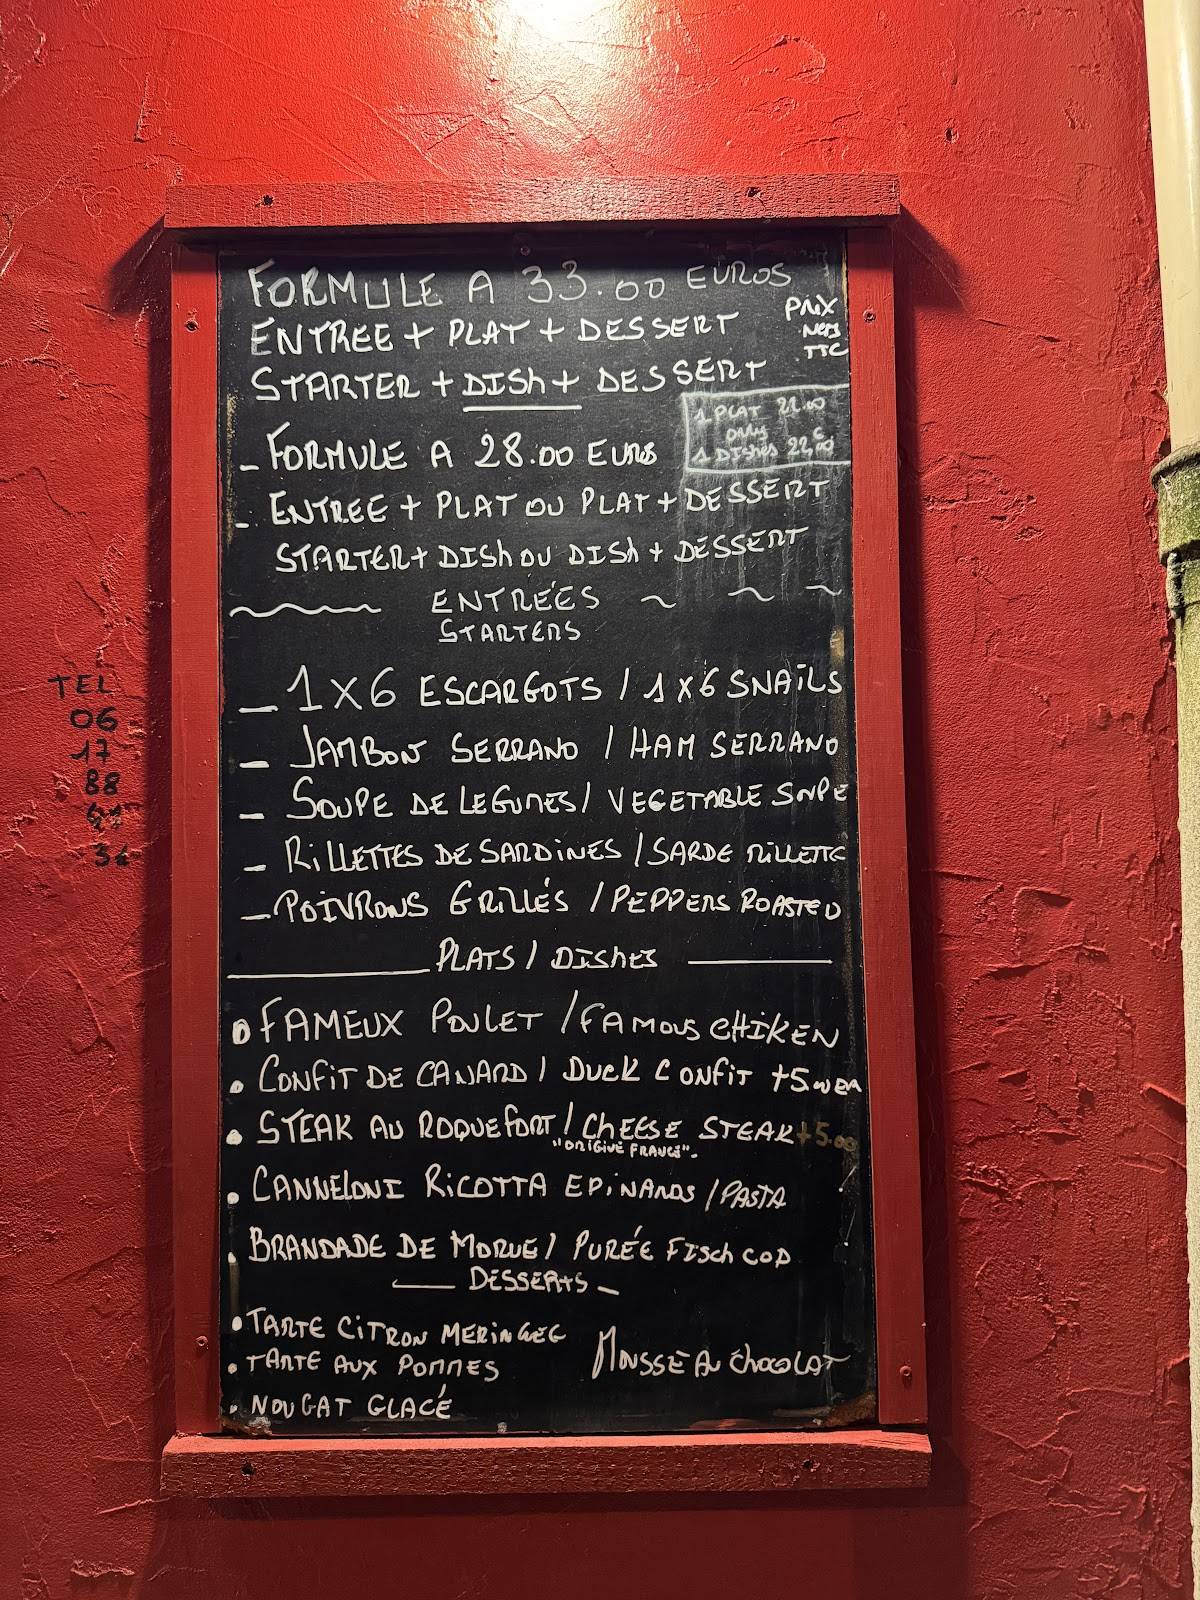 FORMULE A 33.00 EUROS
ENTREE + PLAT + DESSERT
PRIX
NETS
TTC
STARTER + DISH + DESSERT
1 PLAT 22.00
ONLY
1 DISHES 22,00 €
- FORMULE A 28.00 EUROS
- ENTREE + PLAT OU PLAT + DESSERT
STARTER + DISH OU DISH + DESSERT
ENTRÉES
STARTERS
- 1 X 6 ESCARGOTS / 1 X 6 SNAILS
- JAMBON SERRANO / HAM SERRANO
- SOUPE DE LEGUMES / VEGETABLE SOUPE
- RILLETTES DE SARDINES / SARDE RILLETTE
- POIVRONS GRILLÉS / PEPPERS ROASTED
PLATS / DISHES
• FAMEUX POULET / FAMOUS CHIKEN
• CONFIT DE CANARD / DUCK CONFIT +5.00
• STEAK AU ROQUEFORT / CHEESE STEAK +5.00
"ORIGINE FRANCE".
• CANNELONI RICOTTA EPINARDS / PASTA
• BRANDADE DE MORUE / PURÉE FISCH COD
DESSERTS
• TARTE CITRON MERINGEE
• TARTE AUX POMMES
MOUSSE AU CHOCOLAT
• NOUGAT GLACÉ
TEL
06
17
88